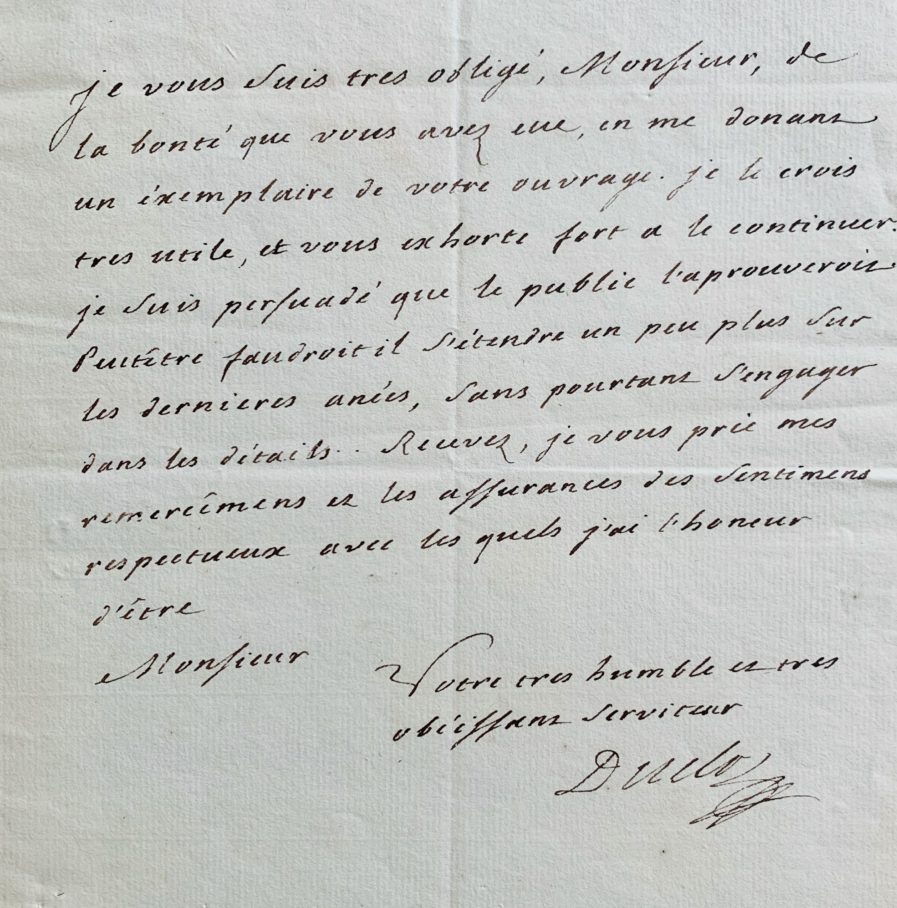 je vous suis tres obligé, Monsieur, de
la bonté que vous avez eue, en me donant
un éxemplaire de votre ouvrage. je le crois
tres utile, et vous exhorte fort a le continuer.
je suis persuadé que le public l'aprouveroit
Peutêtre faudroit il s'étendre un peu plus sur
les dernieres anées, sans pourtant s'engager
dans les détails.. Recevez, je vous prie mes
remercîmens et les assurances des sentimens
respectueux avec les quels j'ai l'honeur
d'être
Monsieur
Votre tres humble et tres
obéissant serviteur
Duclos